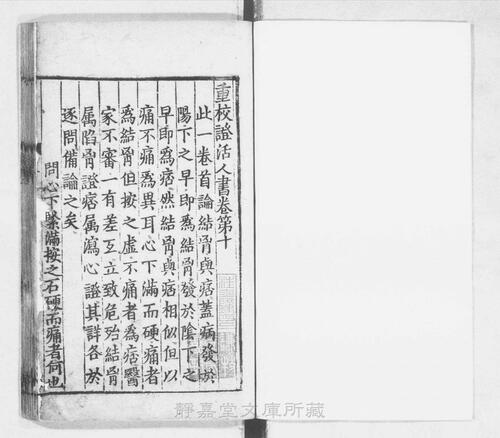 重校證活人書卷第十
此一卷首論結胷與痞蓋病發於
陽下之早即爲結胷發於陰下之
早即爲痞然結胷與痞相似但以
痛不痛爲異耳心下滿而硬痛者
爲結胷但按之虛不痛者爲痞醫
家不審一有差互立致危殆結胷
属陷胷證痞属瀉心證其詳各於
逐問備論之矣
問心下緊滿按之石硬而痛者何也
靜嘉堂文庫所藏